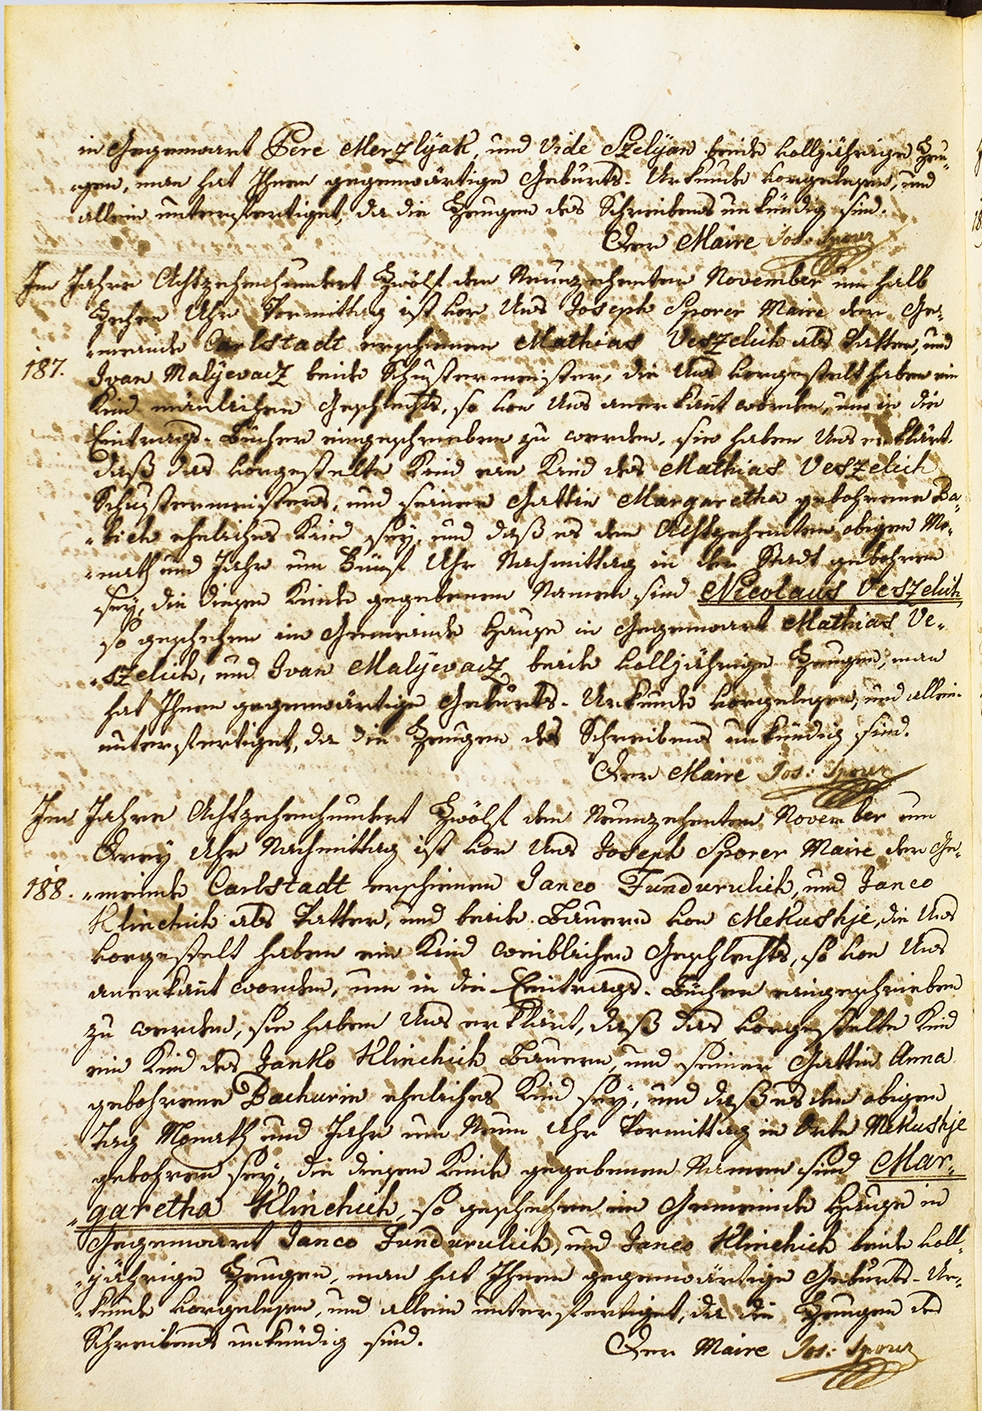 in Gegenwart Pere Merzlyak, und Vide Szelyan beide volljährige Zeu-
gen, man hat Ihnen gegenwärtige Geburts-Urkunde vorgelesen, und
allein unterfertiget, da die Zeugen des Schreibens unkündig sind.
Der Maire Jos: Sporer
Im Jahre Achtzehenhundert Zwölf den Neunzehenten November um halb
Zehen Uhr Vormittag ist vor Uns Joseph Sporer Maire der Ge-
187. -meinde Carlstadt erschienen Mathias Veszelich als Vatter, und
Ivan Malyevacz beide Schustermeister, die Uns vorgestelt haben ein
Kind mänlichen Geschlechts, so von Uns anerkant worden, um in die
Eintrags-Bücher eingeschrieben zu werden, sie haben Uns erklärt,
daß das vorgestelte Kind ein Kind des Mathias Veszelich
Schustermeisters, und seiner Gattin Margaretha gebohrene Ba-
-bich eheliches Kind sey, und daß es den Achtzehenten obigen Mo-
-nath und Jahr um Fünf Uhr Nachmittag in der Stadt gebohren
sey, die diesen Kinde gegebenen Namen sind Nicolaus Veszelich,
so geschehen im Gemeinde Hause in Gegenwart Mathias Ve-
-szelich, und Ivan Malyevacz beide volljährige Zeugen, man
hat Ihnen gegenwärtige Geburts-Urkunde vorgelesen, und allein
unterfertiget, da die Zeugen des Schreibens unkündig sind.
Der Maire Jos: Sporer
Im Jahre Achtzehenhundert Zwölf den Neunzehenten November um
Drey Uhr Nachmittag ist vor Uns Joseph Sporer Maire der Ge-
188. -meinde Carlstadt erschienen Janco Fundurulich, und Janco
Klinchich als Vatter, und beide Bauern von Mekushje, die Uns
vorgestelt haben ein Kind weiblichen Geschlechts, so von Uns
anerkant worden, um in die Eintrags-Bücher eingeschrieben
zu werden, sie haben Uns erklärt, daß das vorgestelte Kind
ein Kind des Janko Klinchich Bauern, und seiner Gattin Anna
gebohrene Bachurin eheliches Kind sey, und daß es den obigen
Tag Monath und Jahr um Neun Uhr Vormittag in Orte Mekushje
gebohren sey, die diesen Kinde gegebenen Namen sind Mar-
-garetha Klinchich, so geschehen im Gemeinde Hause in
Gegenwart Janco Fundurulich, und Janco Klinchich beide voll-
-jährige Zeugen, man hat Ihnen gegenwärtige Geburts-Ur-
-kunde vorgelesen, und allein unterfertiget, da die Zeugen des
Schreibens unkündig sind.
Der Maire Jos: Sporer